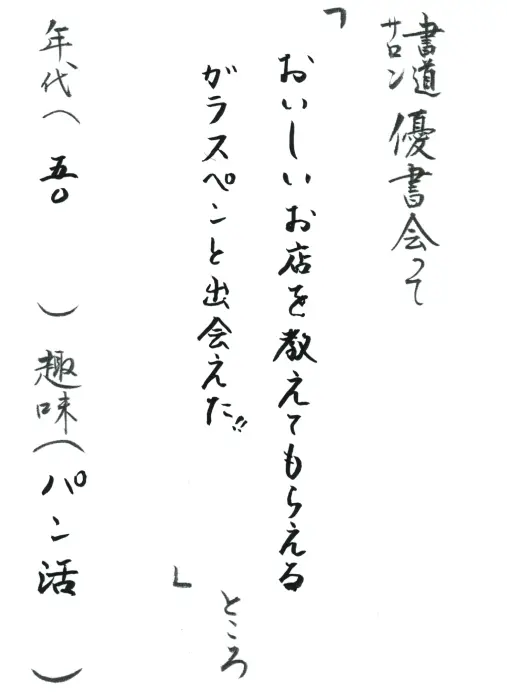 書道サロン 優書会って
「おいしいお店を教えてもらえる
ガラスペンと出会えた!!」
ところ
年代（五〇）趣味（パン活）